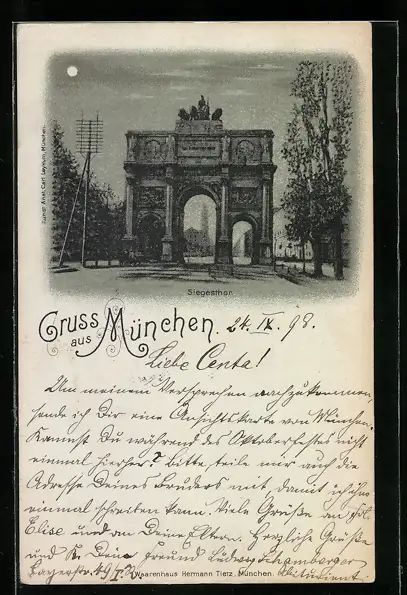 Kunst Anst. Carl Leykum, München.
Siegesthor.
Gruss aus München. 24. IX. 98.
Liebe Centa!
Um meinem Versprechen nachzukommen,
sende ich Dir eine Ansichtskarte von München.
Kannst Du während des Oktoberfestes nicht
einmal hierher? Bitte, teile mir auch die
Adresse Deines Bruders mit, damit ich ihm
einmal schreiben kann. Viele Grüße an Frl.
Elise und an Deine Eltern. Herzliche Grüße
und K. Dein Freund Ludwig Schamberger
Abiturient.
Lagerstr. 49
Waarenhaus Hermann Tietz, München.